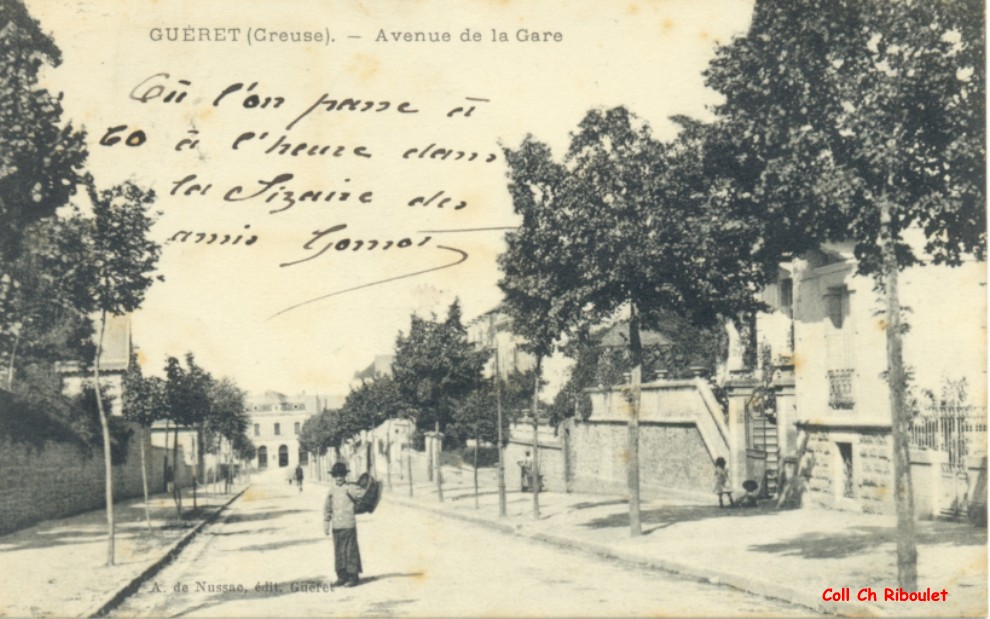 GUÉRET (Creuse). — Avenue de la Gare
Où l'on passe à
60 à l'heure dans
la Sizaire des
amis
A. de Nussac, édit. Guéret
Coll Ch Riboulet